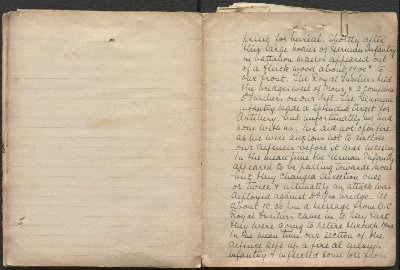 priest for burial. Shortly after
this large bodies of German Infantry
in battalion masses appeared out
of a thick wood about 1700ˣ to
our front. The Royal Fusiliers held
the bridges west of Mons, & 2 Companies
Fusiliers on our left. The German
Infantry made a splendid target for
Artillery, but unfortunately we had
none with us. We did not open fire
as we were anxious not to disclose
our defences before it was necessary
In the mean time the German Infantry
appeared to be passing towards Mons
but they changed direction once
or twice & ultimately an attack was
deployed against the bridge. At
about 12.30 p.m. a message from O.C.
Royal Fusiliers came in to say that
they were going to retire through Mons
In the mean time our section of the
defence kept up a fire at enemy's
infantry & inflicted some loss from